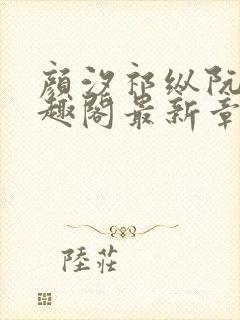 顏汐祁纵阮
趣阁最新章
陸莊